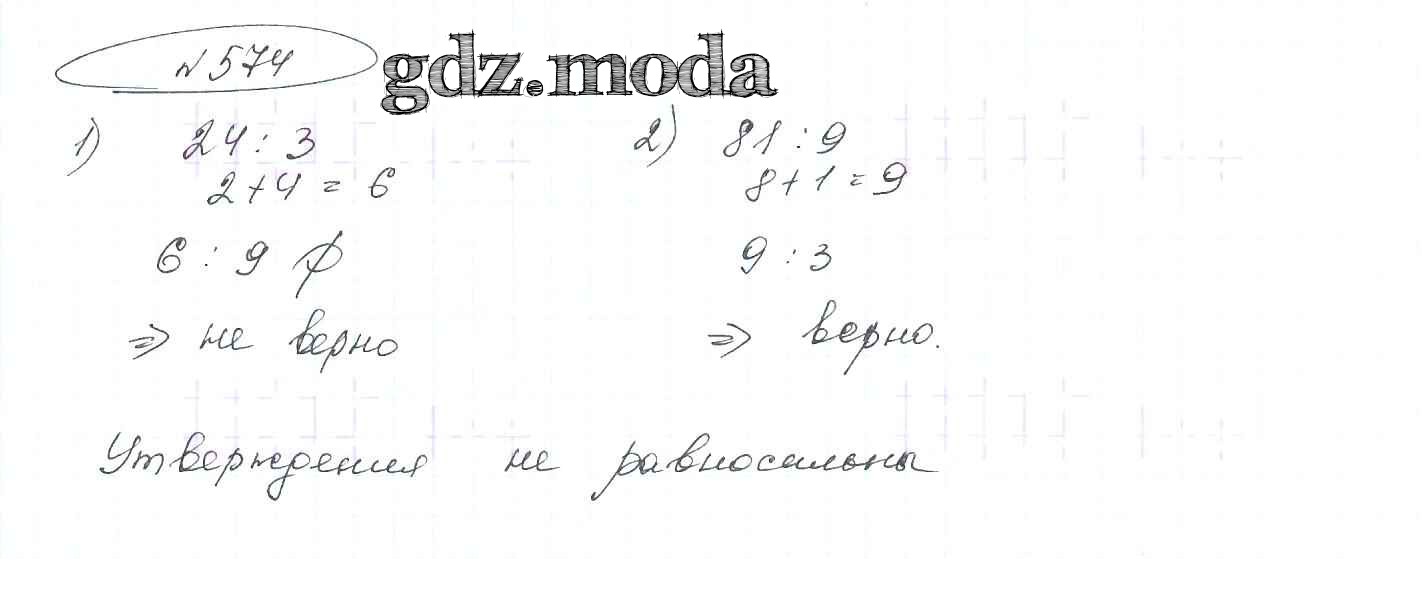 № 574 gdz.moda
1) 24 : 3
2+4 = 6
6 : 9
⇒ не верно
2) 81 : 9
8+1 = 9
9 : 3
⇒ верно.
Утверждения не равносильны